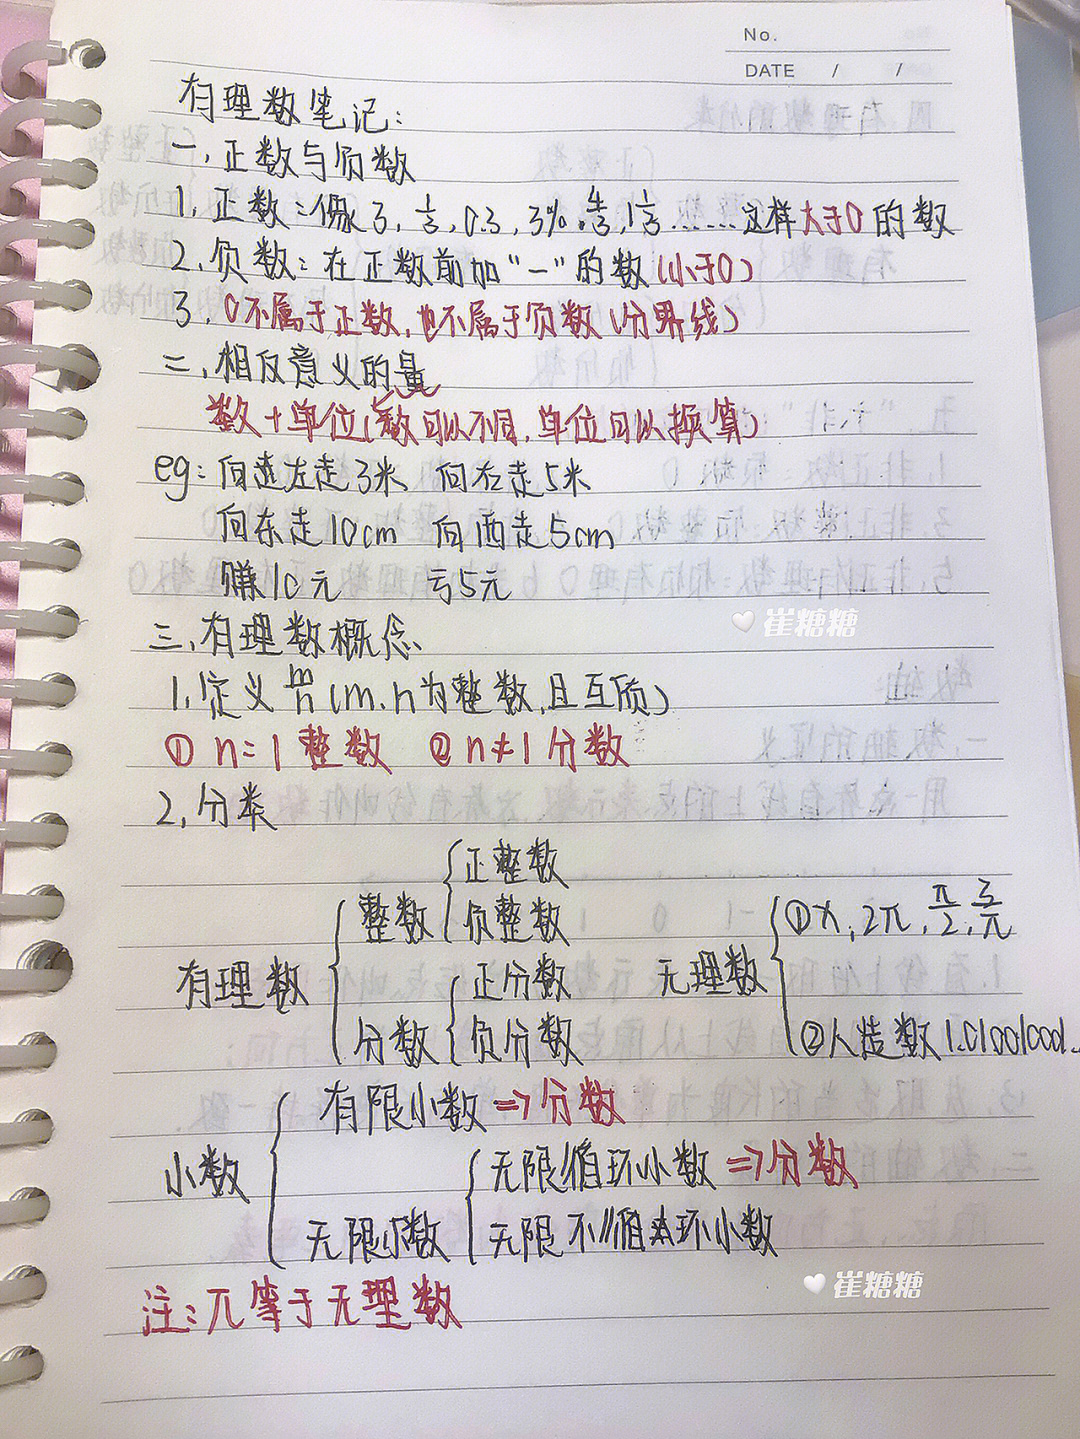 No.
DATE / /
有理数笔记:
一、正数与负数
1、正数:像3, 1/3, 0.3, 3%, 4/3, 1 1/3……这样大于0的数
2、负数:在正数前加"—"的数(小于0)
3、0不属于正数,也不属于负数(分界线)
二、相反意义的量
数+单位(数可以不同,单位可以换算)
eg:向左走3米 向右走5米
向东走10cm 向西走5cm
赚10元 亏5元
崔糖糖
三、有理数概念
1、定义 m/n (m、n为整数,且互质)
① n=1 整数 ② n≠1 分数
2、分类
有理数 { 整数 { 正整数
负整数
分数 { 正分数
负分数
无理数 { ① π, 2π, π/2, 3/π
② 人造数 1.010010001..
小数 { 有限小数 => 分数
无限小数 { 无限循环小数 => 分数
无限不循环小数
崔糖糖
注:π等于无理数